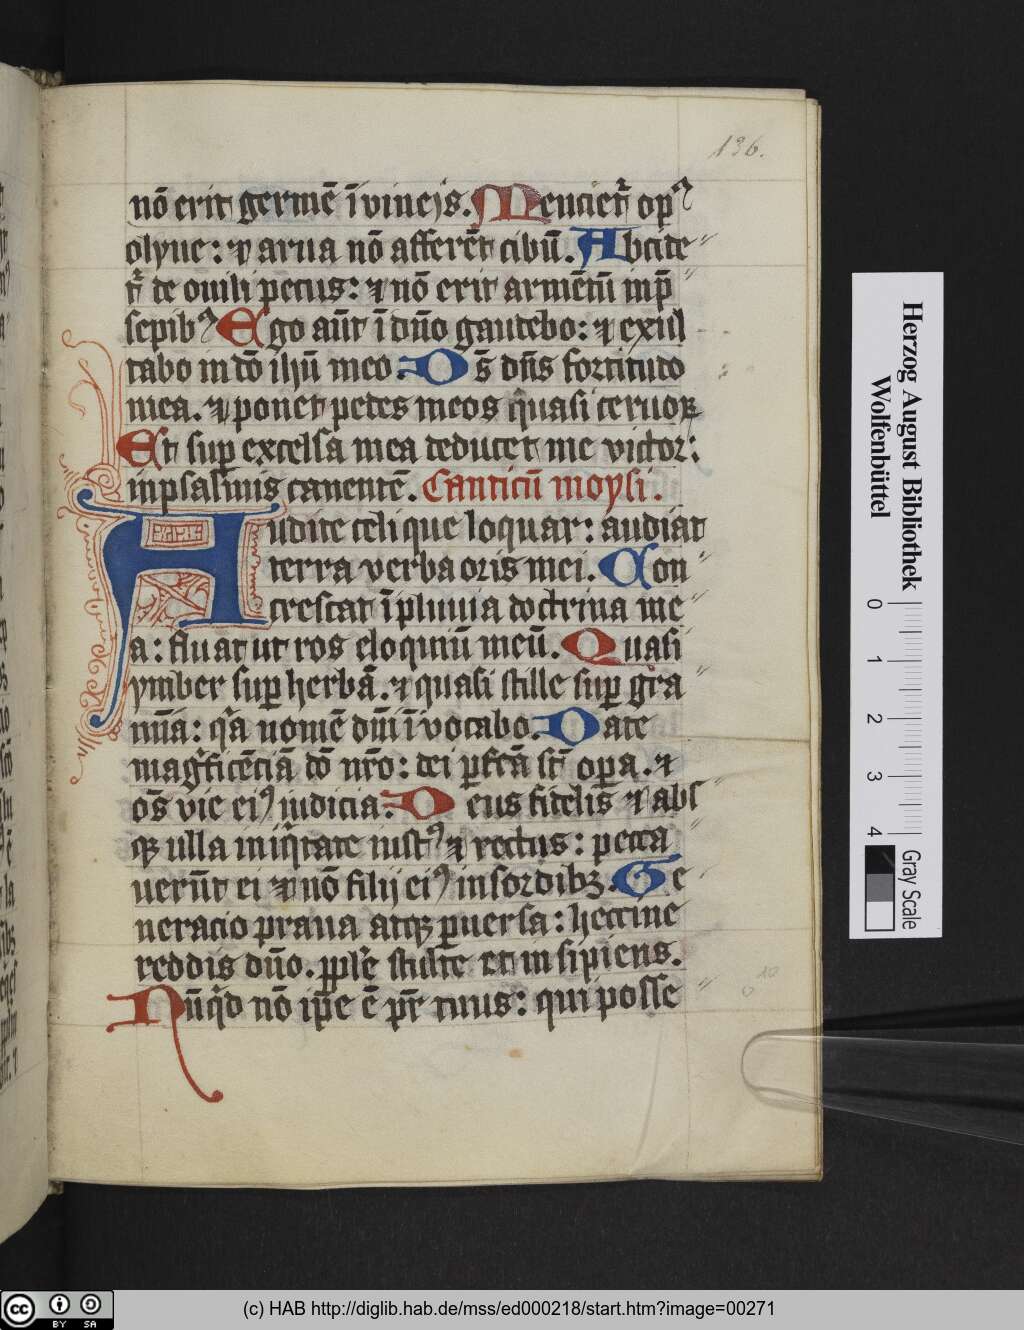 136.
nō erit germē ī vineis. Mencietr̄ opꝰ
olyue: ⁊ arua nō afferēt cibū. Abcide
tr̄ de ouili pecus: ⁊ nō erit armētū in p̄
sepibꝰ Ego aūt ī dn̄o gaudebo: ⁊ exul
tabo in dō ihū meo. Ds̄ dn̄s fortitudo
mea. ⁊ ponet pedes meos quasi ceruoꝝ
Et suꝑ excelsa mea deducet me victor:
in psalmis canentē. Canticū moysi.
Audite celi que loquar: audiat
terra verba oris mei. Con
crescat ī pluuia doctrina me
a: fluat ut ros eloquiū meū. Quasi
ymber suꝑ herbā. ⁊ quasi stille suꝑ gra
mīa: qa nomē dn̄i īvocabo. Date
magͥficēciā dō nr̄o: dei ꝑfcā st̄ oꝑa. ⁊
oēs vie eiꝰ iudicia. Deus fidelis ⁊ abs
qꝫ ulla iniqͥtate iustꝰ ⁊ rectus: pecca
uerūt ei ⁊ nō filij eiꝰ in sordibꝫ. Ge
neracio praua atqꝫ ꝑuersa: heccine
reddis dn̄o. pple stulte et insipiens.
Nūqͥd nō ip̄e ē pr̄ tuus: qui posse
Herzog August Bibliothek
Wolfenbüttel
0 1 2 3 4
Gray Scale
cc BY SA
(c) HAB http://diglib.hab.de/mss/ed000218/start.htm?image=00271